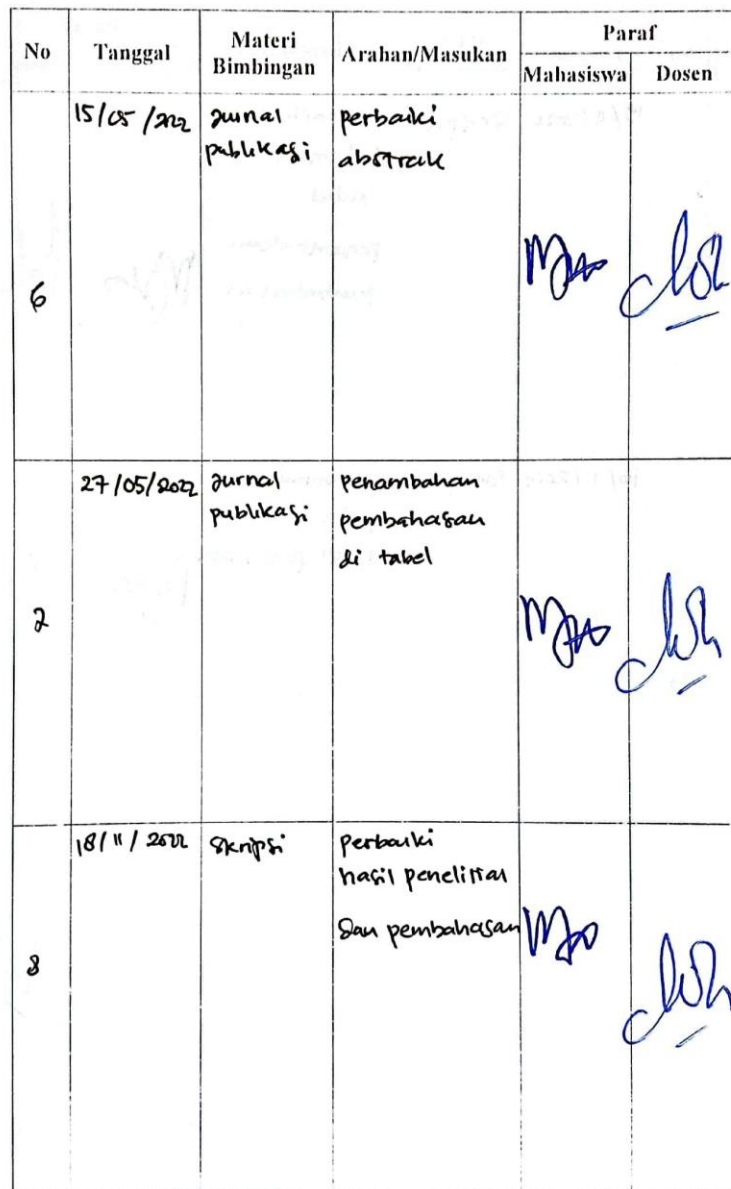 No Tanggal Materi Bimbingan Arahan/Masukan Paraf
Mahasiswa Dosen
6 15/05/2022 Jurnal perbaiki
publikasi abstrak
7 27/05/2022 Jurnal penambahan
publikasi pembahasan
di tabel
8 18/11/2022 Skripsi perbaiki
hasil penelitian
dan pembahasan